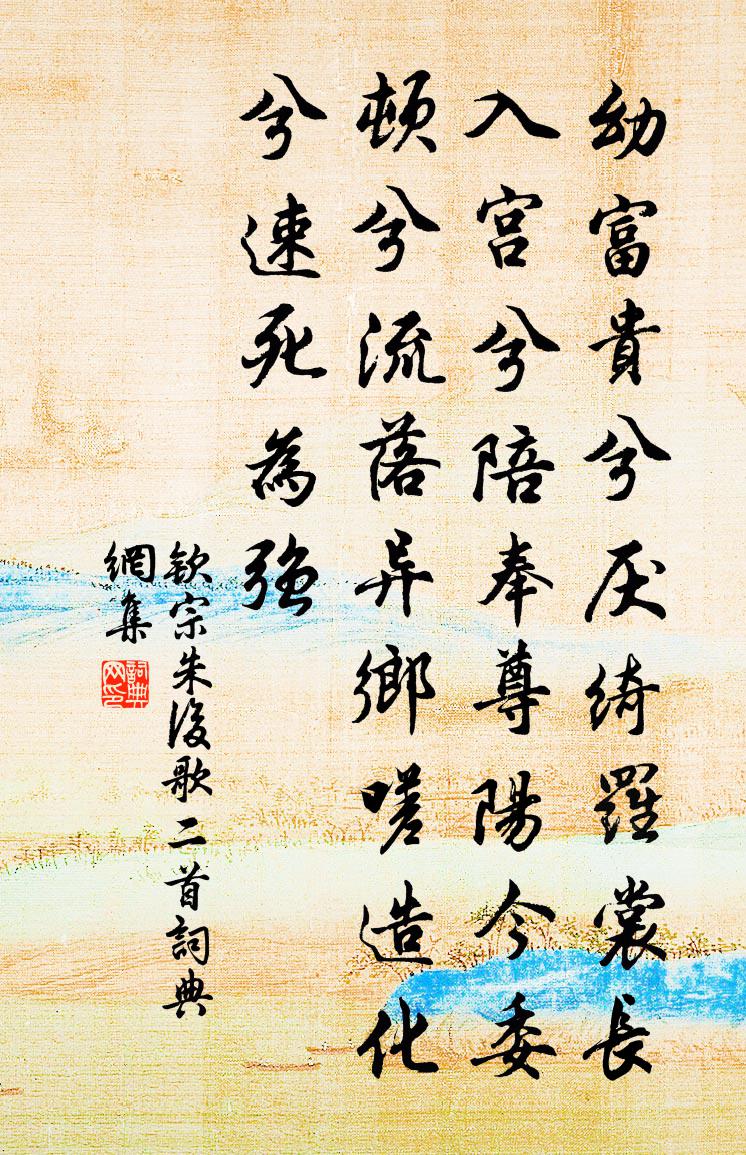 幼富貴兮厌綺羅裳長
入宮兮陪奉尊陽今委
頓兮流落异鄉嗟造化
兮速死為強
欽宗朱後歌二首詞典
網集
詞典
网印